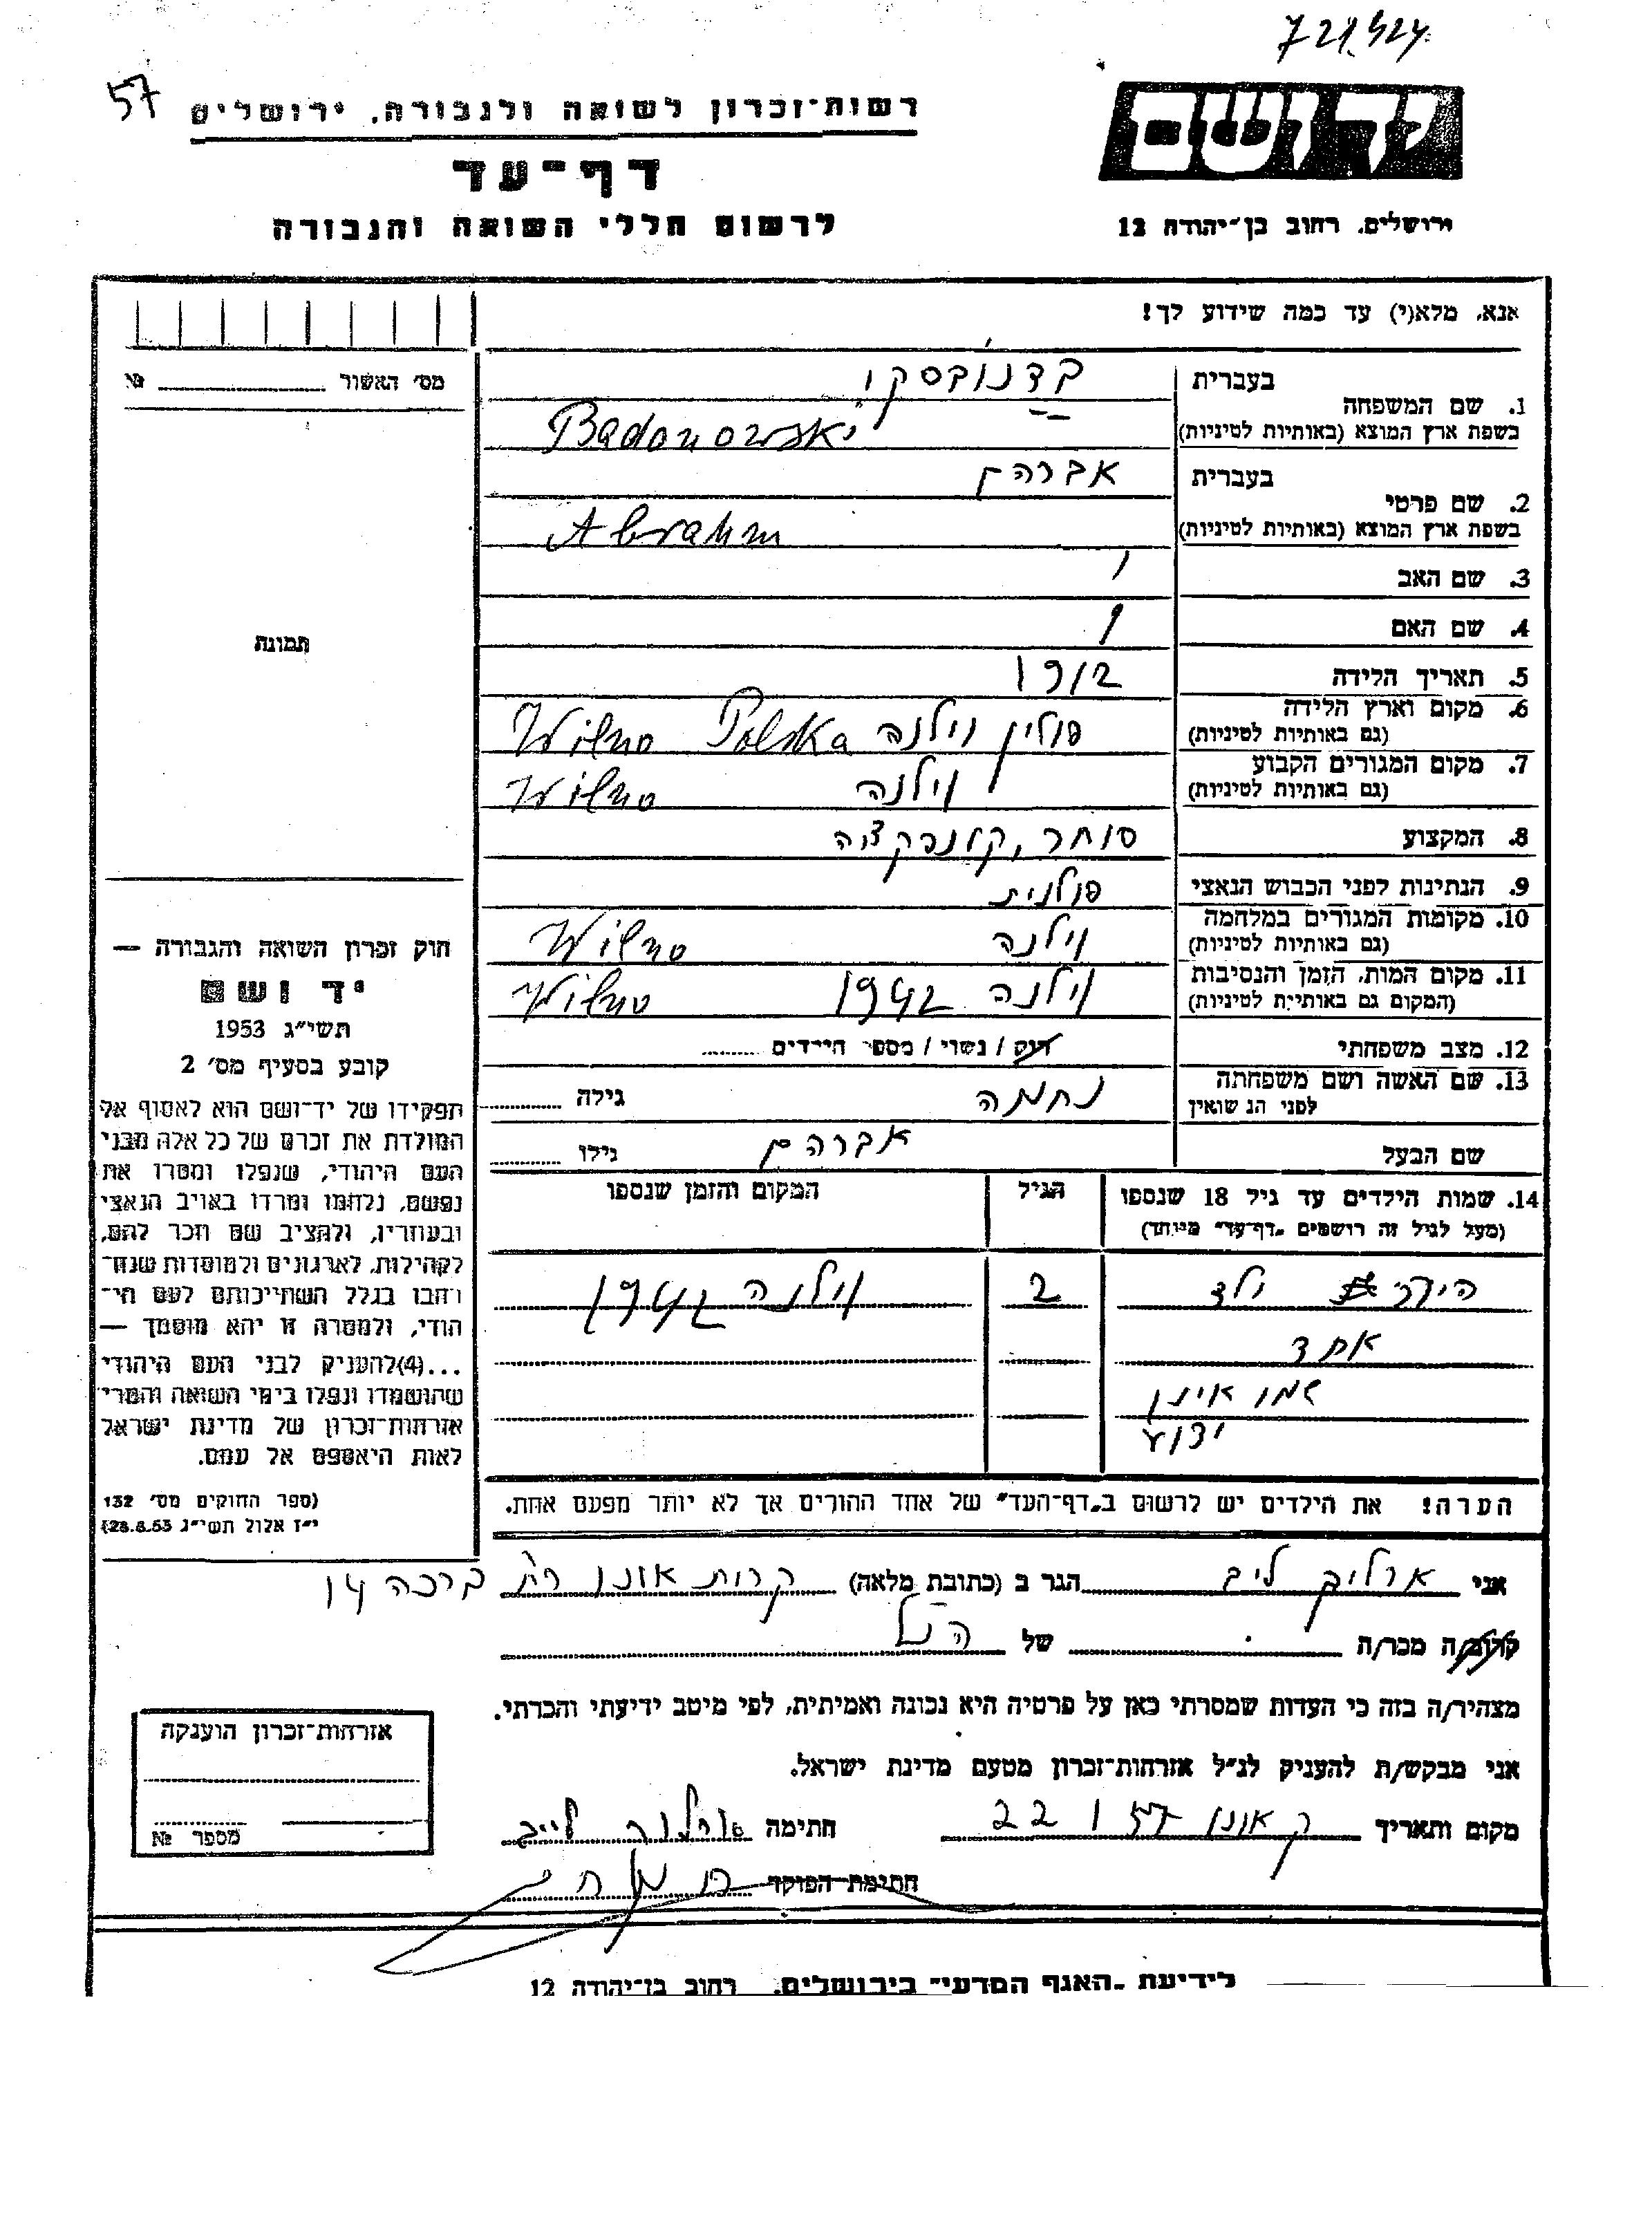 57
רשות־זכרון לשואה ולגבורה, ירושלים
דף־עד
לרשום חללי השואה והגבורה
יד ושם
ירושלים, רחוב בן־יהודה 12
אנא, מלא(י) עד כמה שידוע לך!
מס׳ האשור № 
1. שם המשפחה
בעברית בדנובסקי
בשפת ארץ המוצא (באותיות לטיניות) Badonowski
2. שם פרטי
בעברית אברהם
בשפת ארץ המוצא (באותיות לטיניות) Abrahm
3. שם האב
4. שם האם
5. תאריך הלידה 1912
6. מקום וארץ הלידה
(גם באותיות לטיניות) פולין וילנה Wilno Polska
7. מקום המגורים הקבוע
(גם באותיות לטיניות) וילנה Wilno
8. המקצוע סוחר,
9. הנתינות לפני הכבוש הנאצי פולנית
10. מקומות המגורים במלחמה
(גם באותיות לטיניות) וילנה Wilno
11. מקום המות, הזמן והנסיבות
(המקום גם באותיות לטיניות) וילנה 1942 Wilno
12. מצב משפחתי רוק / נשוי / מספר הילדים
13. שם האשה ושם משפחתה
לפני הנשואין נחמה גילה
שם הבעל אברהם גילו
14. שמות הילדים עד גיל 18 שנספו
(מעל לגיל זה רושמים „דף־עד״ מיוחד)
הגיל
המקום והזמן שנספו
היה ילד 2 וילנה 1942
אחד
שמו אינו
ידוע
הערה! את הילדים יש לרשום ב„דף־העד״ של אחד ההורים אך לא יותר מפעם אחת.
תמונה
חוק זכרון השואה והגבורה —
יד ושם
תשי״ג 1953
קובע בסעיף מס׳ 2
תפקידו של יד־ושם הוא לאסוף אל
המולדת את זכרם של כל אלה מבני
העם היהודי, שנפלו ומסרו את
נפשם, נלחמו ומרדו באויב הנאצי
ובעוזריו, ולהציב שם וזכר להם,
לקהילות, לארגונים ולמוסדות שנח־
רבו בגלל השתייכותם לעם הי־
הודי, ולמטרה זו יהא מוסמך —
...(4)להעניק לבני העם היהודי
שהושמדו ונפלו בימי השואה והמרי
אזרחות־זכרון של מדינת ישראל
לאות היאספם אל עמם.
(ספר החוקים מס׳ 132
י״ז אלול תשי״ג 28.8.53)
אני ארליך ליב הגר ב (כתובת מלאה) קרית אונו רח ברכה 14
קרוב/ה מכר/ה של הנ״ל
מצהיר/ה בזה כי העדות שמסרתי כאן על פרטיה היא נכונה ואמיתית, לפי מיטב ידיעתי והכרתי.
אני מבקש/ת להעניק לנ״ל אזרחות־זכרון מטעם מדינת ישראל.
מקום ותאריך ק אונו 22 1 57 חתימה ארליך לייב
חתימת־הפוקד
אזרחות־זכרון הוענקה
מספר №
לידיעת „האגף המדעי״ בירושלים, רחוב בן־יהודה 12